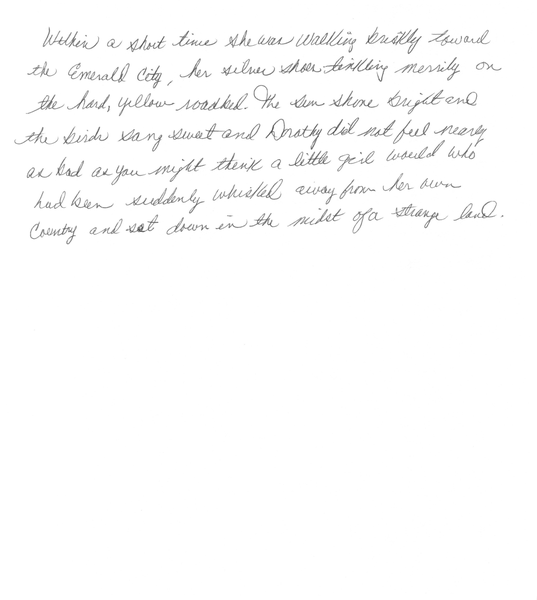 Within a short time she was walking briskly toward
the Emerald City, her silver shoes tinkling merrily on
the hard, yellow roadbed. The sun shone bright and
the birds sang sweet and Dorothy did not feel nearly
as bad as you might think a little girl would who
had been suddenly whisked away from her own
Country and set down in the midst of a strange land.